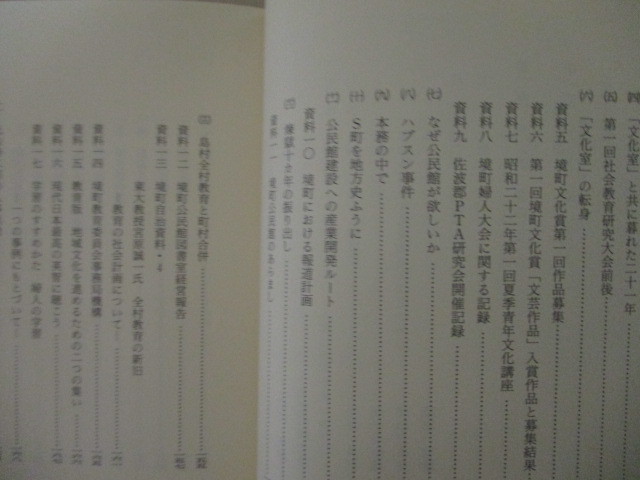 ㈣ 「文化室」と共に暮れた二十一年
㈤ 第一回社会教育研究大会前後
㈥ 「文化室」の転身
資料五 境町文化賞第一回作品募集
資料六 第一回境町文化賞「文芸作品」入賞作品と募集結果
資料七 昭和二十二年第一回夏季青年文化講座
資料八 境町婦人大会に関する記録
資料九 佐波郡PTA研究会開催記録
㈦ なぜ公民館が欲しいか
㈧ ハプスン事件
㈨ 本務の中で
㈩ S町を地方史ふうに
公民館建設への産業開発ルート
資料一〇 境町における報道計画
煉獄十カ年の振り出し
資料一一 境町公民館のあらまし
島村全村教育と町村合併
資料一二 境町公民館図書室経営報告
資料一三 境町自治資料・
東大教授宮原誠一氏 全村教育の新旧
―教育の社会計画について―
資料一四 境町教育委員会事務局機構
資料一五 教育版 地域文化を進めるための二つの集い
資料一六 現代日本最高の英智に聴こう
資料一七 学習のすすめかた 婦人の学習
―一つの事例にもとづいて―